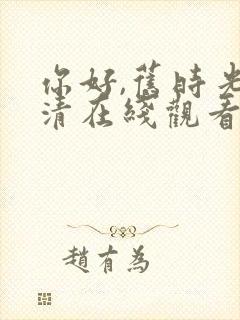 你好,舊時光
清在綫觀看
趙有為